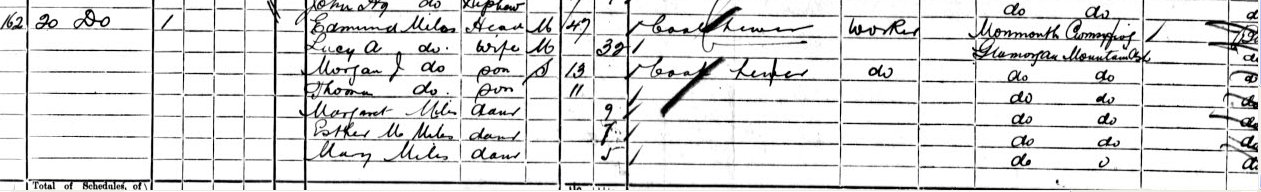 do Nephew do do
162 20 Do 1 Edmund Miles Head M 47 Coal Hewer Worker Monmouth
Lucy A do. Wife M 32 Glamorgan Mountain Ash
Morgan J do son S 13 Coal Hewer do do do
Thomas do. son 11 do do
Margaret Miles daur 9 do do
Esther M Miles daur 7 do do
Mary Miles daur 5 do o
Total of Schedules, of